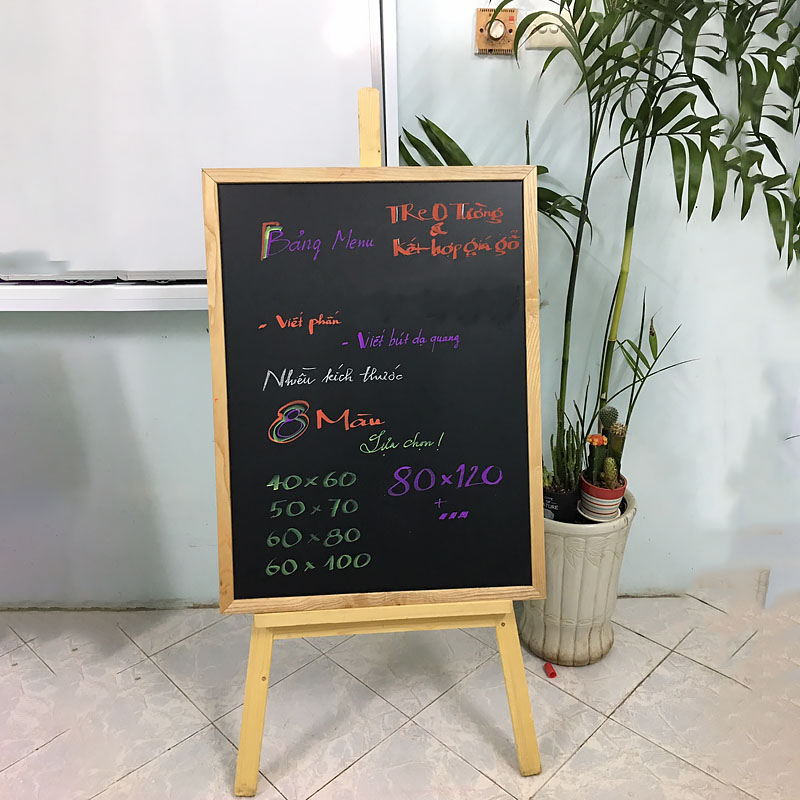 Bảng Menu
TReO Tường
&
kết hợp giá gỗ
- Viết phấn
- Viết bút dạ quang
Nhiều kích thước
8 Màu
Lựa chọn!
40 x 60
50 x 70
60 x 80
60 x 100
80 x 120
+
...